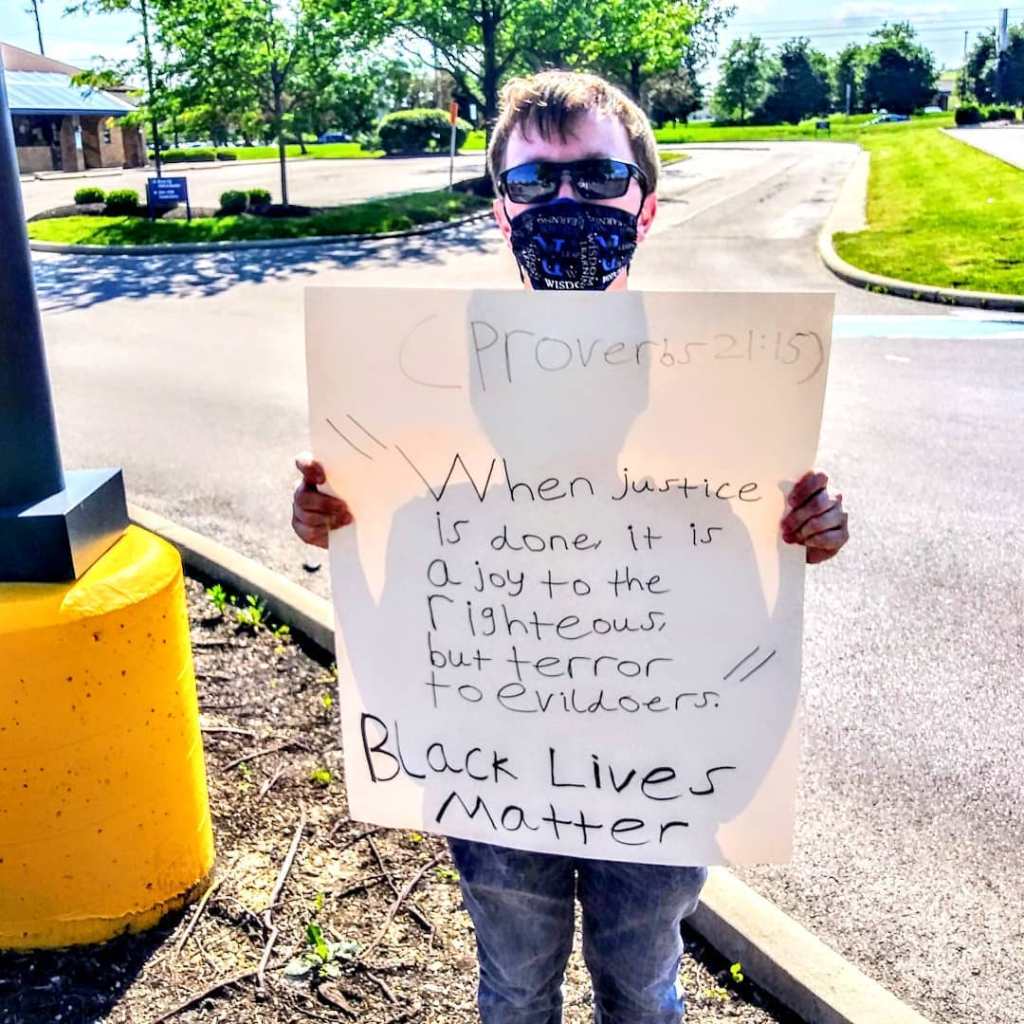 LEARNING
WISDOM
WISDOM
(Proverbs 21:15)
"When justice
is done, it is
a joy to the
righteous,
but terror
to evildoers."
Black Lives
Matter